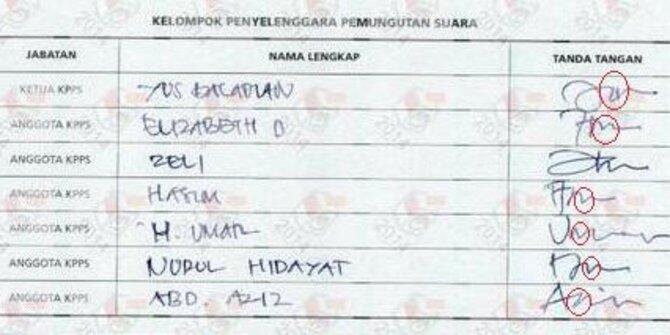 KELOMPOK PENYELENGGARA PEMUNGUTAN SUARA
JABATAN NAMA LENGKAP TANDA TANGAN
KETUA KPPS YUS
ANGGOTA KPPS ELIZABETH D
ANGGOTA KPPS ZELI
ANGGOTA KPPS HATIM
ANGGOTA KPPS H. UMAR
ANGGOTA KPPS NURUL HIDAYAT
ANGGOTA KPPS ABD. AZIZ